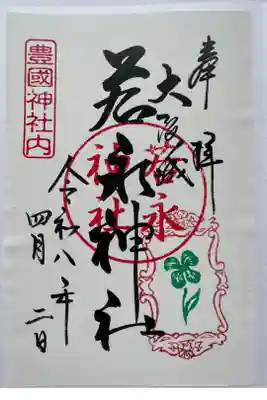 奉拝
大阪城
若永神社
若永
神社
令和八年
四月二日
豊國神社内